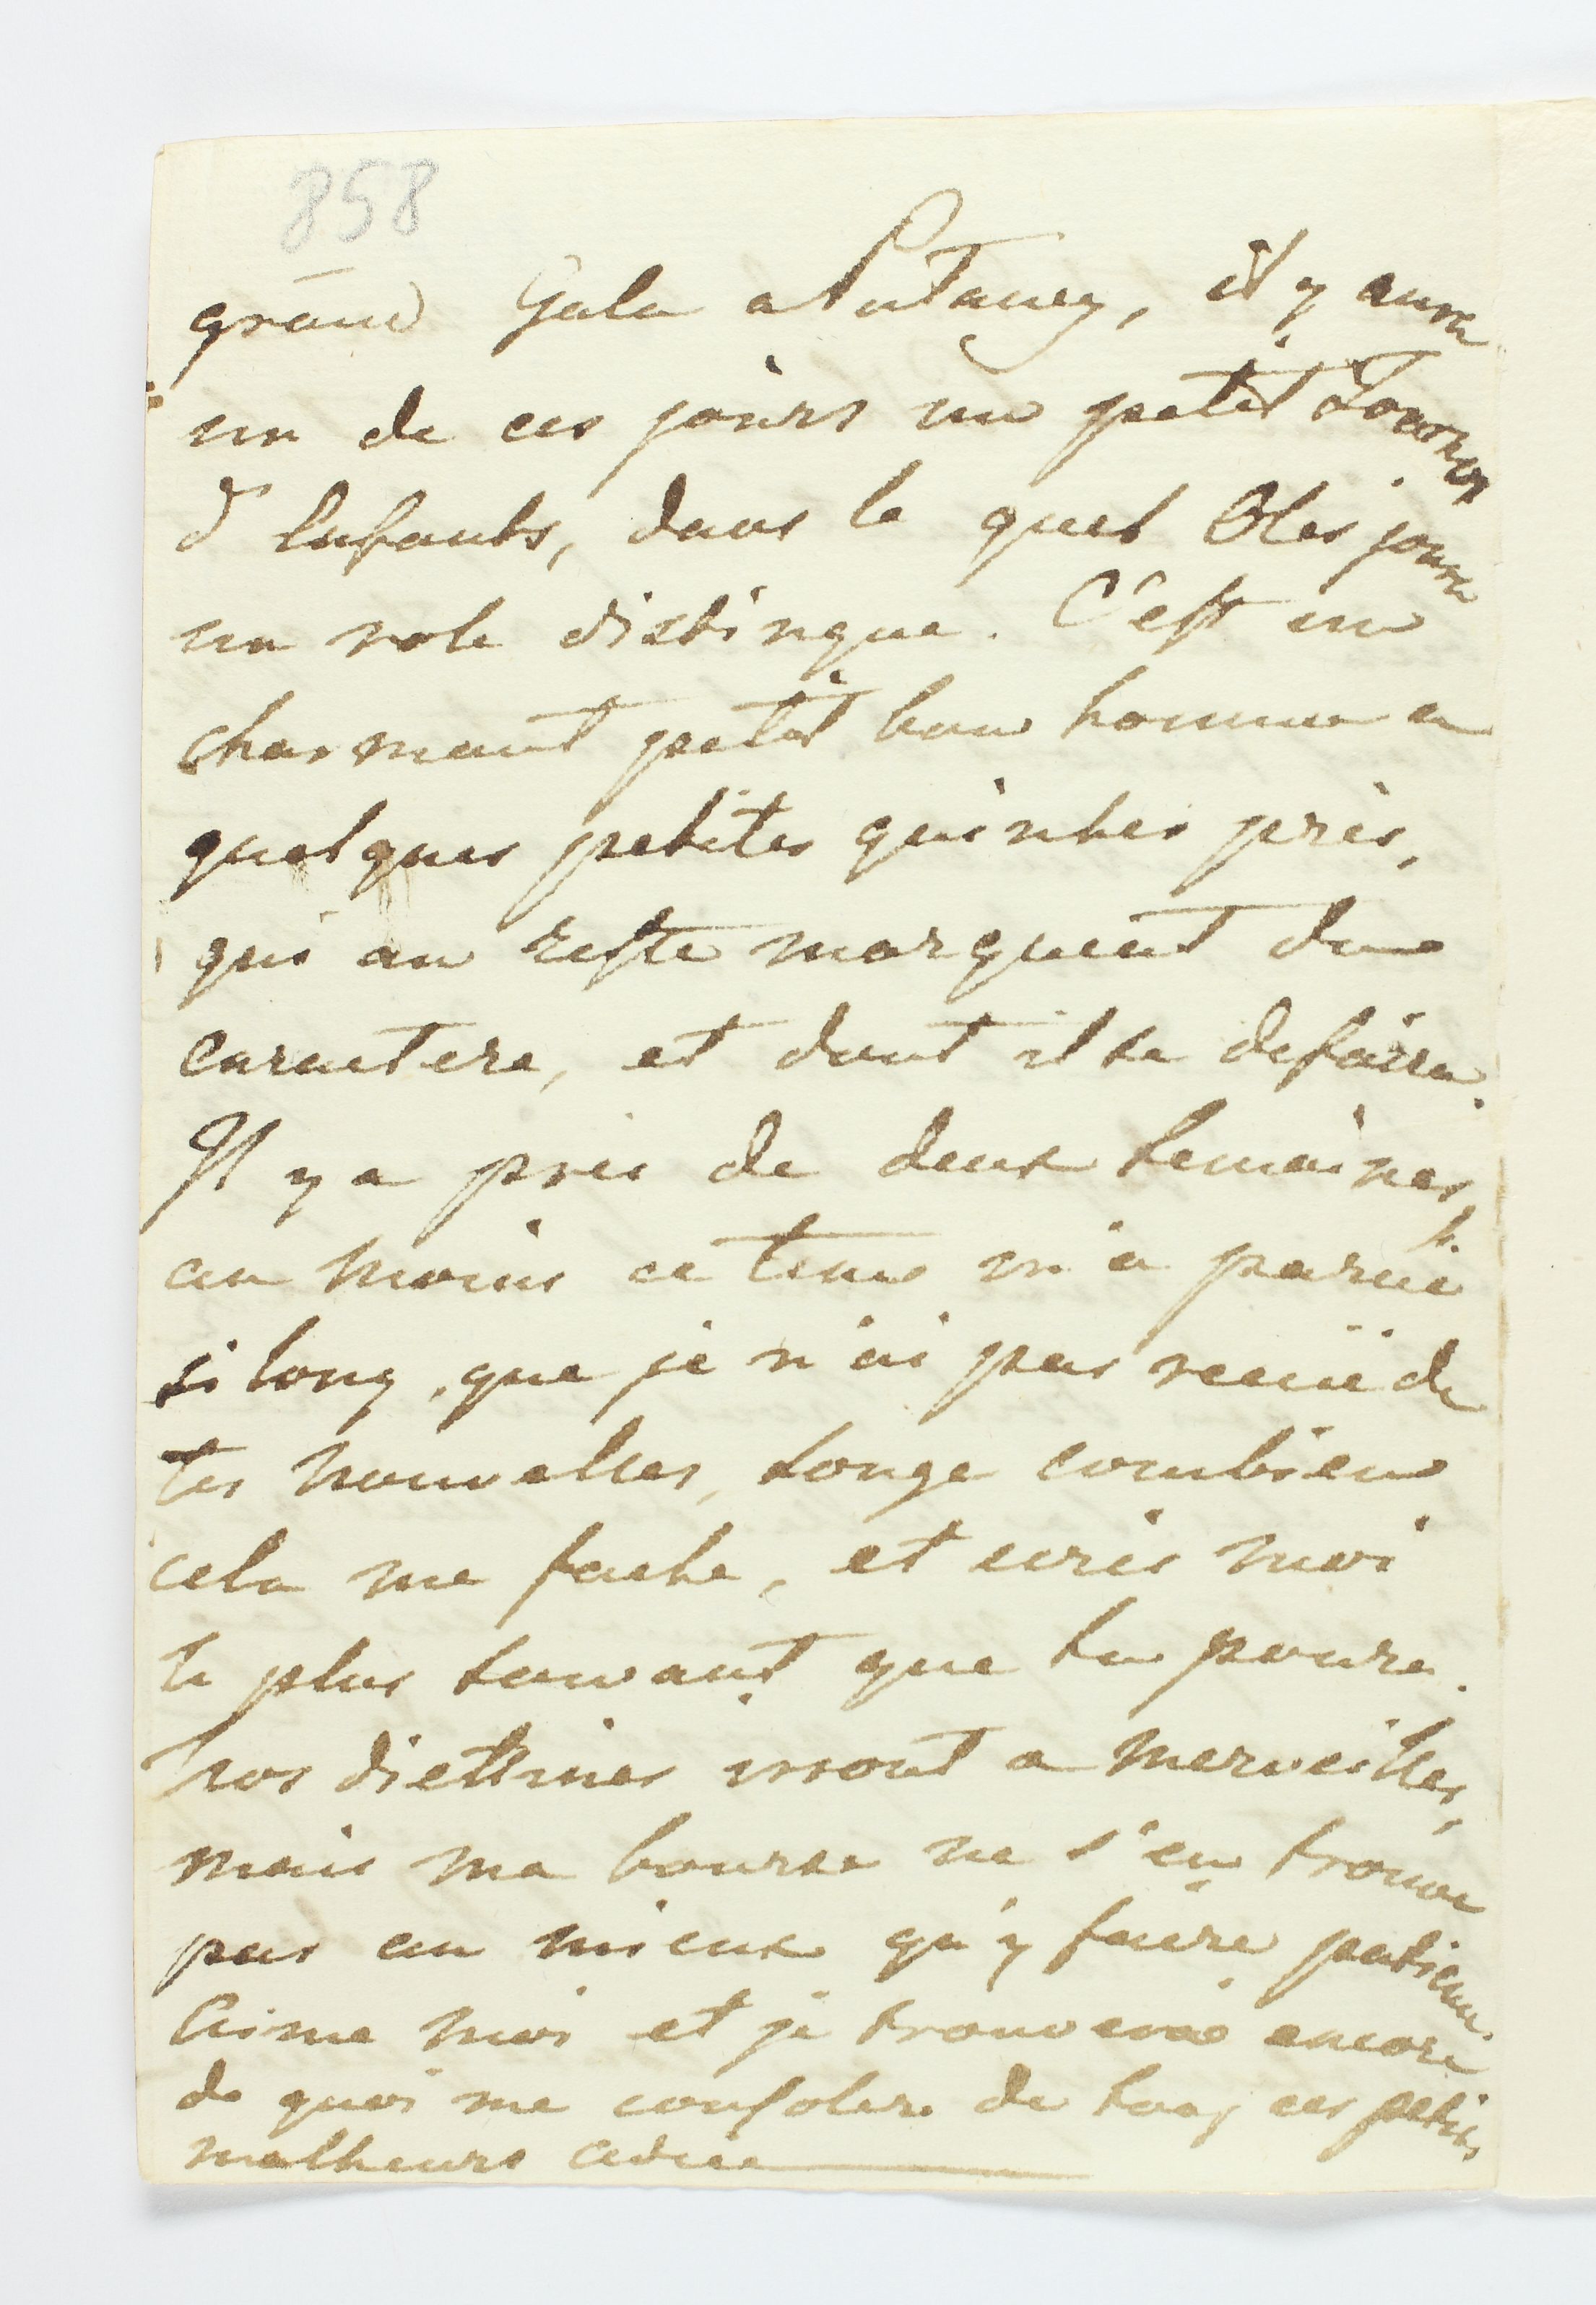 858
grand Gala a Putaney, il y aura
un de ces jours un petit Tournoy
d'Enfants, dans le quel Oles joura
un role distingue. C'est un
charmant petit bon homme a
quelques petites quintes près,
qui au reste marquent du
caractere, et dont il se defaira.
Il y a pres de deux semaines,
au moins ce tems m'a parue
si long, que je n'ai pas recue de
tes nouvelles, songe combien
cela me fache, et ecris moi
le plus souvant que tu poura.
nos diettines vront a merveilles,
mais ma bourse ne s'en trouve
pas au mieux qu'y faire patience.
Aime moi et je trouverai encore
de quoi me consoler de tous ces petits
malheurs adieu